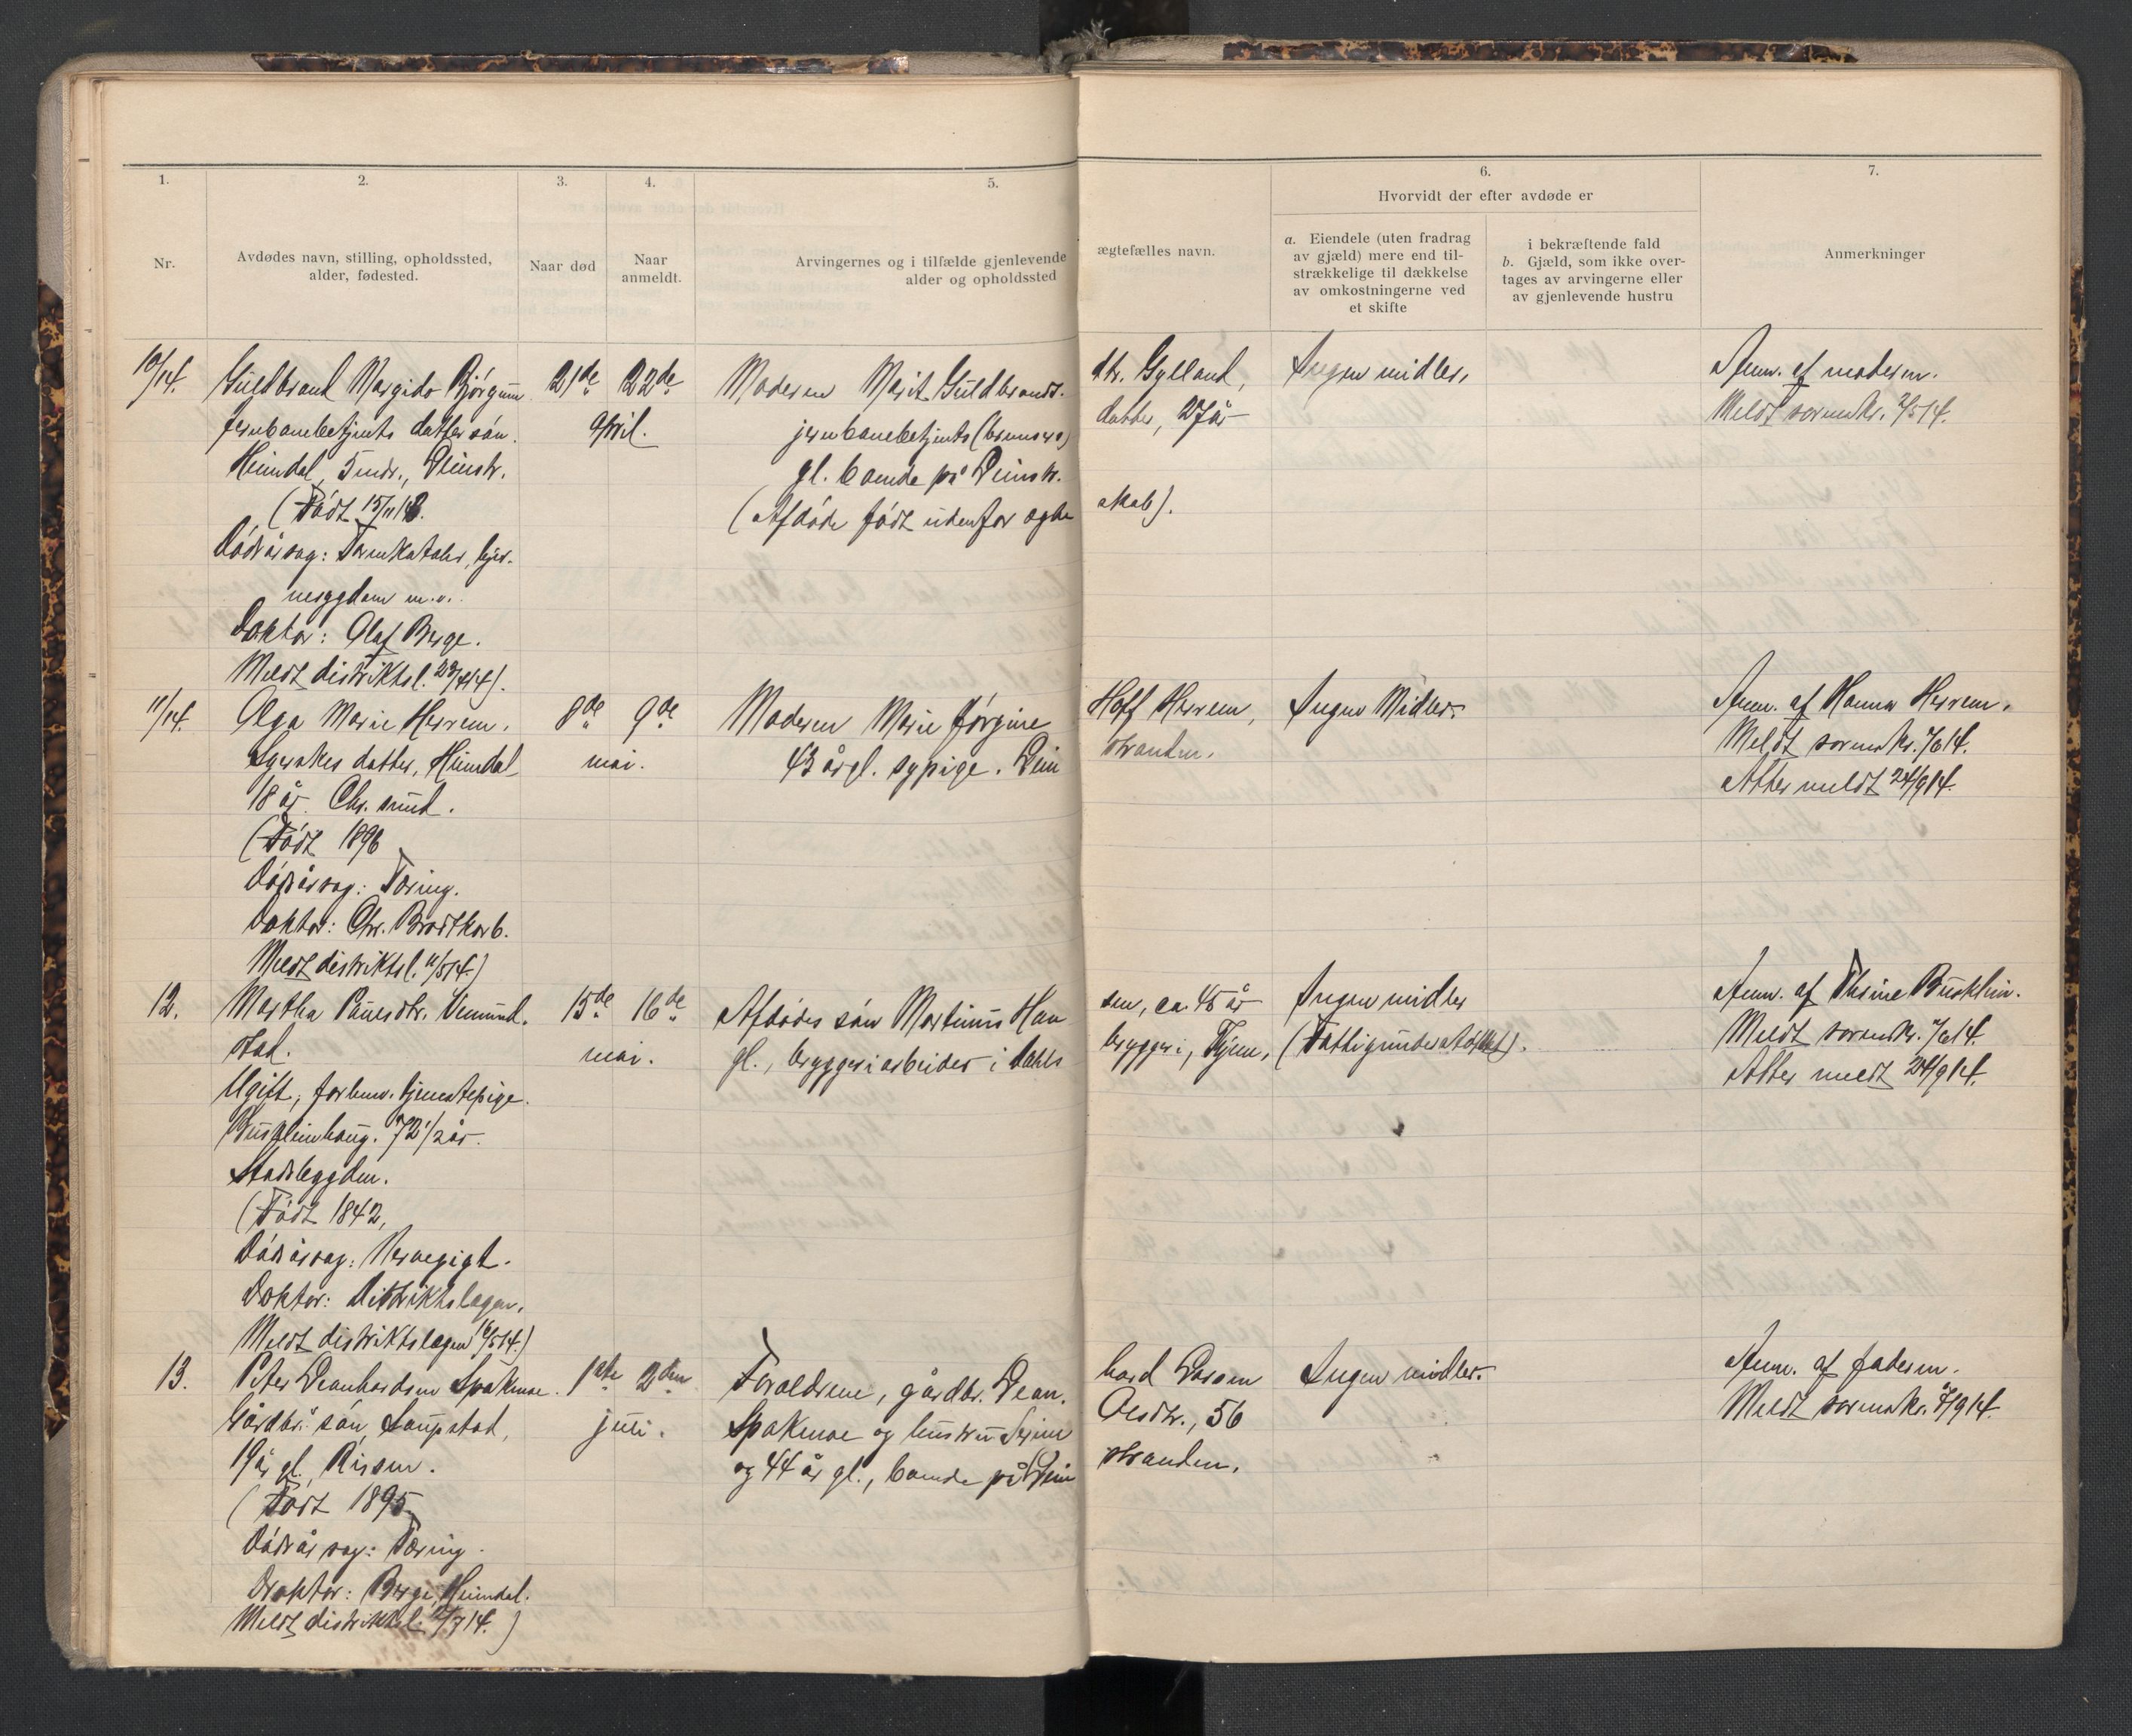 1.
2.
3.
4.
5.
6.
7.
Nr.
Avdødes navn, stilling, opholdssted,
alder, fødested.
Naar død
Naar
anmeldt.
Arvingernes og i tilfælde gjenlevende
alder og opholdssted
ægtefælles navn.
Hvorvidt der efter avdøde er
a. Eiendele (uten fradrag
av gjæld) mere end til-
strækkelige til dækkelse
av omkostningerne ved
et skifte
i bekræftende fald
b. Gjæld, som ikke over-
tages av arvingerne eller
av gjenlevende hustru
Anmerkninger
10/14.
Guldbrand Margido Bjørgum
jernbanebetjents dattersøn.
Heimdal, 5 mdr., Leinstr.
(Født 15/11 13.
Dødsårsag: Tarmkatahr, hjer-
nesygdom m.v.
Doktor: Olaf Berge.
Meldt distriktsl. 23/4 14).
21de
April.
22de
Moderen Marit Guldbrands-
jernbanebetjents
gl. boende på Leinstr.
(Afdøde født udenfor ægte
dtr. Gylland,
datter, 27 år
skab).
Ingen midler.
Anm. af moderen.
Meldt sorenskr. 2/5 14.
11/14.
Olga Marie Herrem.
Syerskes datter, Heimdal
18 år. Chr. sund.
(Født 1896
Dødsårsag: Tæring.
Doktor: Chr. Brodtkorb.
Meldt distriktsl. 11/5 14.)
8de
mai.
9de
Moderen Marie Jørgine
43 år gl. sypige. Lein
Hoff Herrem,
stranden.
Ingen Midler.
Anm. af Hanna Herrem.
Meldt sorenskr. 7/6 14.
Atter meldt 24/9 14.
12.
Martha Paulsdtr. Vemund-
stad.
Ugift, forhenv. tjenestepige.
72 1/2 år.
Stadsbygden.
(Født 1842,
Dødsårsag: Nervegigt.
Doktor: Distriktslægen.
Meldt distriktslægen 16/5 14.)
15de
mai.
16de
Afdødes søn Martinus Han
gl., bryggeriarbeider i Dahls
sen, ca. 45 år
bryggeri, Thjem,
Ingen midler
(Fattigunderstøttet).
Anm. af Thrine Busklein.
Meldt sorenskr. 7/6 14.
Atter meldt 24/9 14.
13.
Peter Leanhardsen Spakmoe.
Gårdbr.s søn, Saupstad,
19 år gl. Rissen.
(Født 1895
Dødsårsag: Tæring.
Doktor: Berge, Heimdal.
Meldt distriktsl. 12/7 14.)
1ste
juli.
2den
Forældrene, gårdbr. Lean-
Spakmoe og hustru
og 44 år gl., boende på Lein
hard Larsen
Olsdtr., 56
stranden.
Ingen midler.
Anm. af faderen.
Meldt sorenskr. 7/9 14.